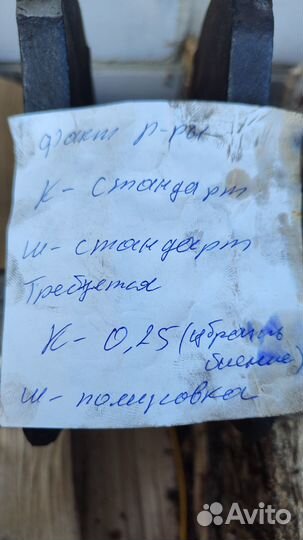 Факт р-ры
К- стандарт
ш- стандарт
Требуется
К- 0,25 (убрать
биение)
ш- полировка
Avito